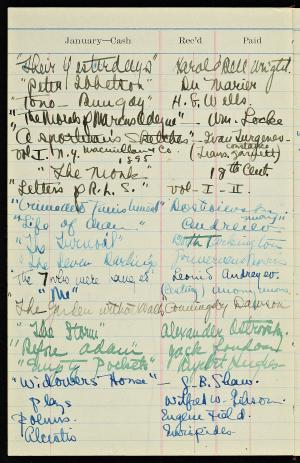 January—Cash Rec'd Paid
"Their Yesterdays" Harold Bell Wright.
"Peter Ibbetson" Du Maurier
"Tono-Bungay" H. G. Wells.
"The Morals of Marcus Ordeyne" - Wm. Locke
"A Sportsman's Sketches" - Ivan Turgenev
vol-I. N.Y. Macmillan & Co. 1895 (Trans. Constance Garnett)
"The Monk 18th Cent
Letters of R.L.S." vol-I-II.
"Crime and Punishment" Dostoievsky
"Life of Man" Andreiev
"The Turmoil" Booth Tarkington
"The Seven Darlings" Gouverneur Morris
The 7 who were hanged Leonid Andreyev.
"Me"
"The Garden without Walls" Coningsby Dawson
"The Storm" Alexander Ostrovsky.
"Before Adam" Jack London
"Empty Pockets" Rupert Hughes
"Widowers Houses" - G. B. Shaw.
plays Wilfred W. Gibson.
Poems. Eugene Field.
Alcestis Euripides